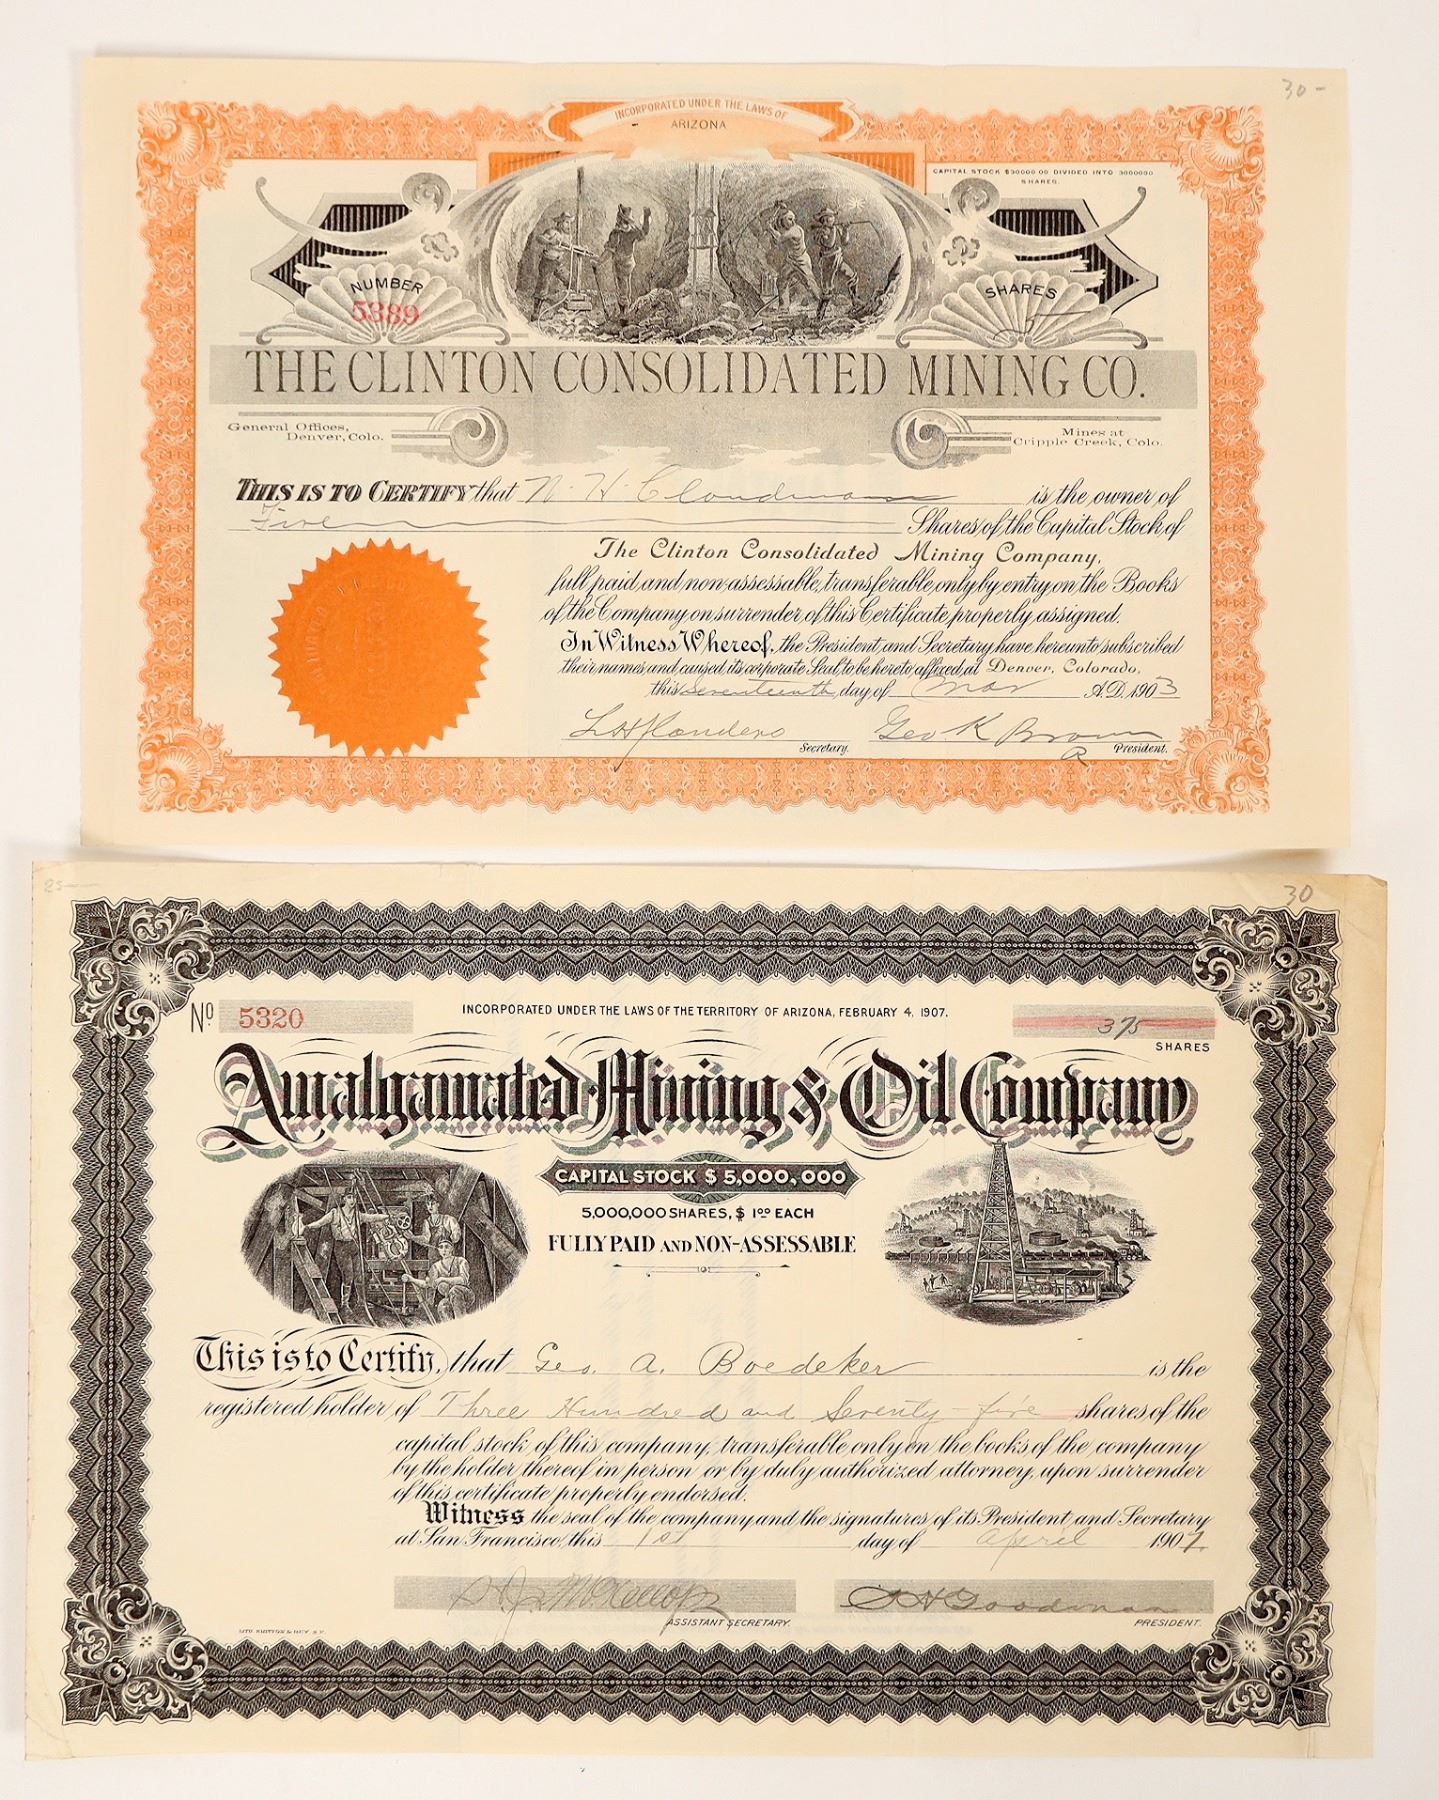 30-
INCORPORATED UNDER THE LAWS OF
ARIZONA
CAPITAL STOCK $30000.00 DIVIDED INTO 3000000
SHARES.
NUMBER
5389
SHARES
5
THE CLINTON CONSOLIDATED MINING CO.
General Offices,
Denver, Colo.
Mines at
Cripple Creek, Colo.
THIS IS TO CERTIFY that N. H. Cloudman is the owner of
Five Shares of the Capital Stock of
The Clinton Consolidated Mining Company,
full paid and non-assessable, transferable only by entry on the Books
of the Company on surrender of this Certificate properly assigned.
In Witness Whereof, the President and Secretary have hereunto subscribed
their names and caused its corporate Seal to be hereto affixed at Denver, Colorado,
this seventeenth day of Mar A.D. 1903
L H Flanders
Secretary.
Geo K Brown
President.
25-
30
No 5320
INCORPORATED UNDER THE LAWS OF THE TERRITORY OF ARIZONA, FEBRUARY 4, 1907.
375
SHARES
Amalgamated Mining & Oil Company
CAPITAL STOCK $ 5,000,000
5,000,000 SHARES, $ 1.00 EACH
FULLY PAID AND NON-ASSESSABLE
This is to Certify, that Geo. A. Boedeker is the
registered holder of Three Hundred and Seventy-five shares of the
capital stock of this company, transferable only on the books of the company
by the holder thereof in person or by duly authorized attorney, upon surrender
of this certificate properly endorsed.
Witness the seal of the company and the signatures of its President and Secretary
at San Francisco, this 1st day of April 1907.
ASSISTANT SECRETARY.
Goodman
PRESIDENT.